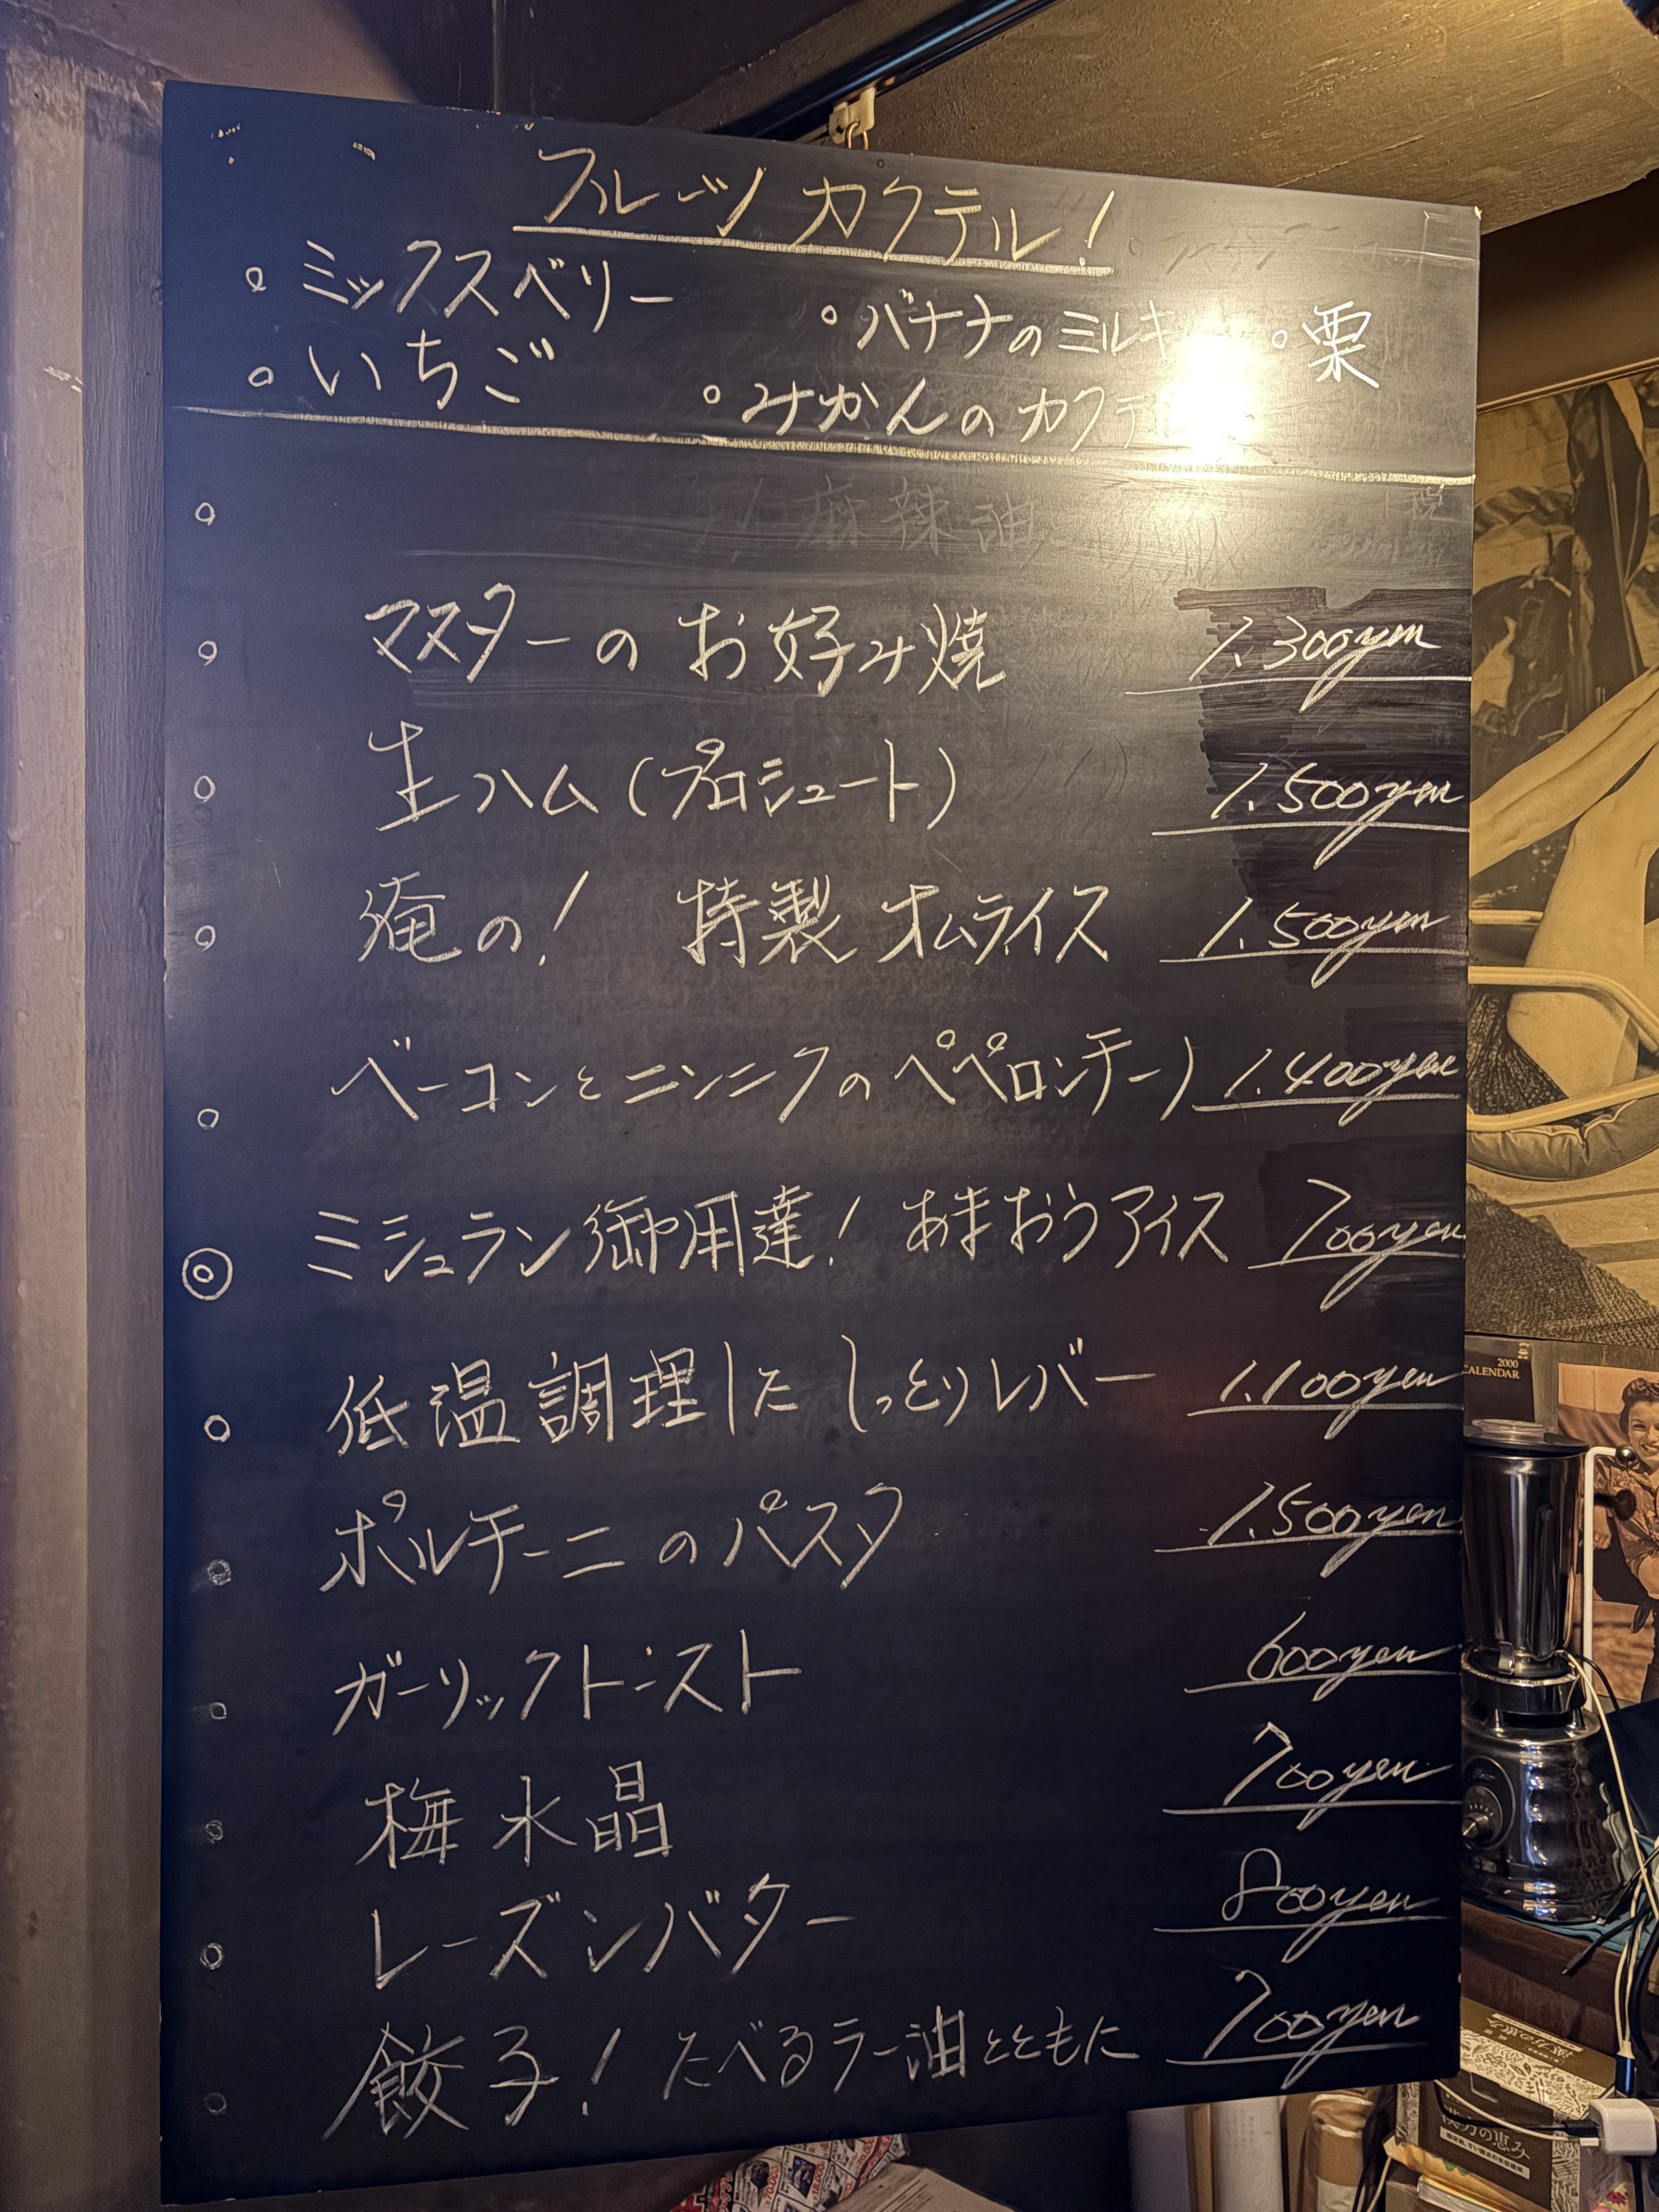 フルーツ カクテル!
◦ ミックスベリー ◦ バナナのミルキ ◦ 栗
◦ いちご ◦ みかんの カクテ
麻辣油 税
マスターの お好み焼 1.300yen
生ハム(プロシュート) 1.500yen
俺の! 特製 オムライス 1.500yen
ベーコンとニンニクのペペロンチーノ 1.400yen
ミシュラン御用達! あまおうアイス 700yen
低温調理した しっとりレバー 1.100yen
ポルチーニのパスタ 1.500yen
ガーリックトースト 600yen
梅水晶 700yen
レーズンバター 800yen
餃子! たべるラー油とともに 700yen
2000
CALENDAR
の恵み